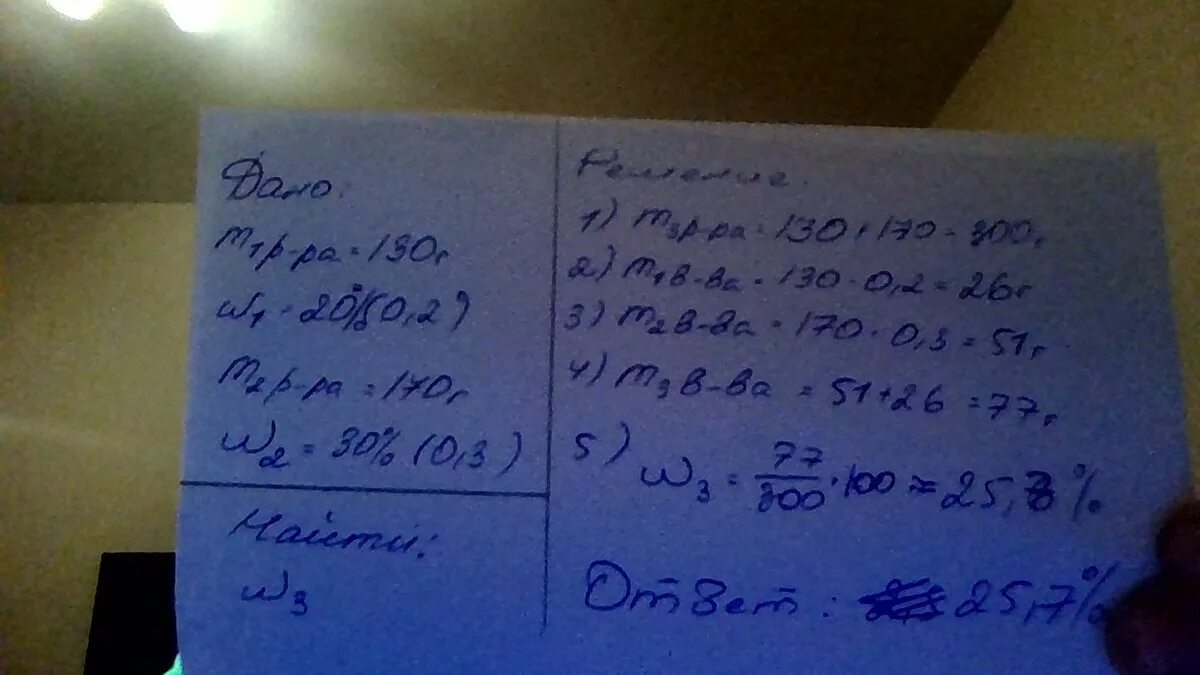 Дано:
m1р-ра = 130г
w1 = 20%(0,2)
m2р-ра = 170г
w2 = 30% (0,3)
Найти:
w3
Решение.
1) m3р-ра = 130 + 170 = 300г
2) m1в-ва = 130 · 0,2 = 26г
3) m2в-ва = 170 · 0,3 = 51г
4) m3в-ва = 51 + 26 = 77г
5) w3 = 77/300 · 100 ≈ 25,7%
Ответ: 25,7%